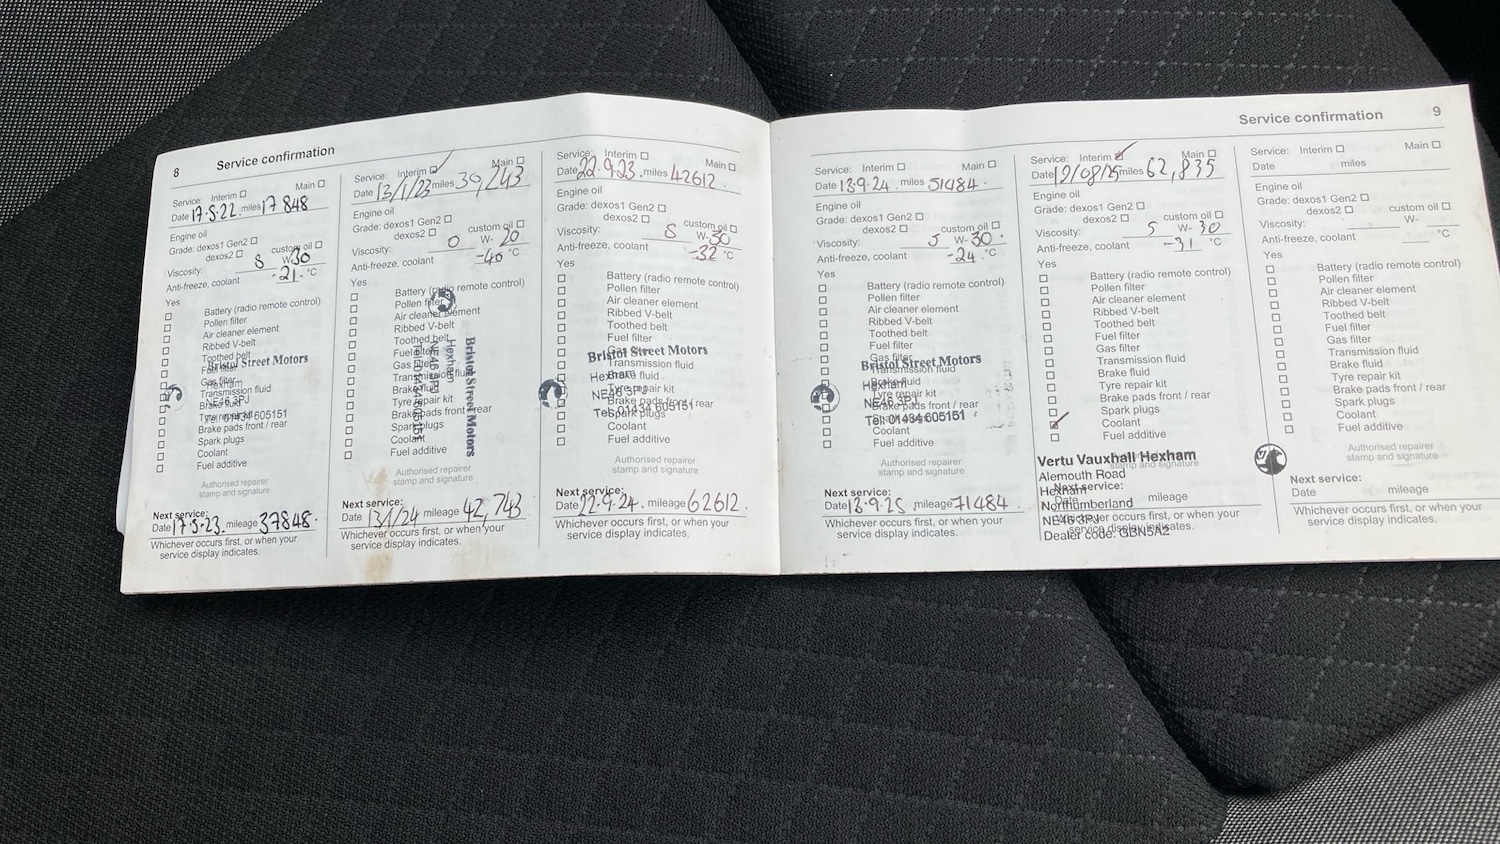 8 Service confirmation
Service: Interim ☐ Main ☐
Date 17·5·22. miles 17 848
Engine oil
Grade: dexos1 Gen2 ☐
dexos2 ☐ custom oil ☐
Viscosity: 5 W- 30
Anti-freeze, coolant -21. °C
Yes
☐ Battery (radio remote control)
☐ Pollen filter
☐ Air cleaner element
☐ Ribbed V-belt
☐ Toothed belt
☐ Fuel filter
☐ Gas filter
☐ Transmission fluid
☐ Brake fluid
☐ Tyre repair kit
☐ Brake pads front / rear
☐ Spark plugs
☐ Coolant
☐ Fuel additive
Bristol Street Motors
Hexham
NE46 3PJ
Tel: 01434 605151
Authorised repairer
stamp and signature
Next service:
Date 17·5·23. mileage 37848·
Whichever occurs first, or when your
service display indicates.
Service: Interim ☐ ✓ Main ☐
Date 13/1/23 miles 30,743
Engine oil
Grade: dexos1 Gen2 ☐
dexos2 ☐ custom oil ☐
Viscosity: 0 W- 20
Anti-freeze, coolant -40 °C
Yes
☐ Battery (radio remote control)
☐ Pollen filter
☐ Air cleaner element
☐ Ribbed V-belt
☐ Toothed belt
☐ Fuel filter
☐ Gas filter
☐ Transmission fluid
☐ Brake fluid
☐ Tyre repair kit
☐ Brake pads front / rear
☐ Spark plugs
☐ Coolant
☐ Fuel additive
Bristol Street Motors
Hexham
NE46 3PJ
Tel: 01434 605151
Authorised repairer
stamp and signature
Next service:
Date 13/1/24 mileage 42,743
Whichever occurs first, or when your
service display indicates.
Service: Interim ☐ Main ☐
Date 22·9·23. miles 42612.
Engine oil
Grade: dexos1 Gen2 ☐
dexos2 ☐ custom oil ☐
Viscosity: 5 W- 30
Anti-freeze, coolant -32 °C
Yes
☐ Battery (radio remote control)
☐ Pollen filter
☐ Air cleaner element
☐ Ribbed V-belt
☐ Toothed belt
☐ Fuel filter
☐ Gas filter
☐ Transmission fluid
☐ Brake fluid
☐ Tyre repair kit
☐ Brake pads front / rear
☐ Spark plugs
☐ Coolant
☐ Fuel additive
Bristol Street Motors
Hexham
NE46 3PJ
Tel: 01434 605151
Authorised repairer
stamp and signature
Next service:
Date 22·9·24. mileage 62612.
Whichever occurs first, or when your
service display indicates.
Service confirmation 9
Service: Interim ☐ Main ☐
Date 13·9·24. miles 51484·
Engine oil
Grade: dexos1 Gen2 ☐
dexos2 ☐ custom oil ☐
Viscosity: 5 W- 30.
Anti-freeze, coolant -24. °C
Yes
☐ Battery (radio remote control)
☐ Pollen filter
☐ Air cleaner element
☐ Ribbed V-belt
☐ Toothed belt
☐ Fuel filter
☐ Gas filter
☐ Transmission fluid
☐ Brake fluid
☐ Tyre repair kit
☐ Brake pads front / rear
☐ Spark plugs
☐ Coolant
☐ Fuel additive
Bristol Street Motors
Hexham
NE46 3PJ
Tel: 01434 605151
Authorised repairer
stamp and signature
Next service:
Date 13·9·25 mileage 71484
Whichever occurs first, or when your
service display indicates.
Service: Interim ☐ ✓ Main ☐
Date 12/08/25 miles 62,835
Engine oil
Grade: dexos1 Gen2 ☐
dexos2 ☐ custom oil ☐
Viscosity: 5 W- 30
Anti-freeze, coolant -31 °C
Yes
☐ Battery (radio remote control)
☐ Pollen filter
☐ Air cleaner element
☐ Ribbed V-belt
☐ Toothed belt
☐ Fuel filter
☐ Gas filter
☐ Transmission fluid
☐ Brake fluid
☐ Tyre repair kit
☐ Brake pads front / rear
☐ Spark plugs
☐ ✓ Coolant
☐ Fuel additive
Vertu Vauxhall Hexham
Alemouth Road
Hexham
Northumberland
NE46 3PJ
Dealer code: GBN5A2
stamp and signature
Next service:
Date mileage
Whichever occurs first, or when your
service display indicates.
Service: Interim ☐ Main ☐
Date miles
Engine oil
Grade: dexos1 Gen2 ☐
dexos2 ☐ custom oil ☐
Viscosity: W-
Anti-freeze, coolant °C
Yes
☐ Battery (radio remote control)
☐ Pollen filter
☐ Air cleaner element
☐ Ribbed V-belt
☐ Toothed belt
☐ Fuel filter
☐ Gas filter
☐ Transmission fluid
☐ Brake fluid
☐ Tyre repair kit
☐ Brake pads front / rear
☐ Spark plugs
☐ Coolant
☐ Fuel additive
Authorised repairer
stamp and signature
Next service:
Date mileage
Whichever occurs first, or when your
service display indicates.